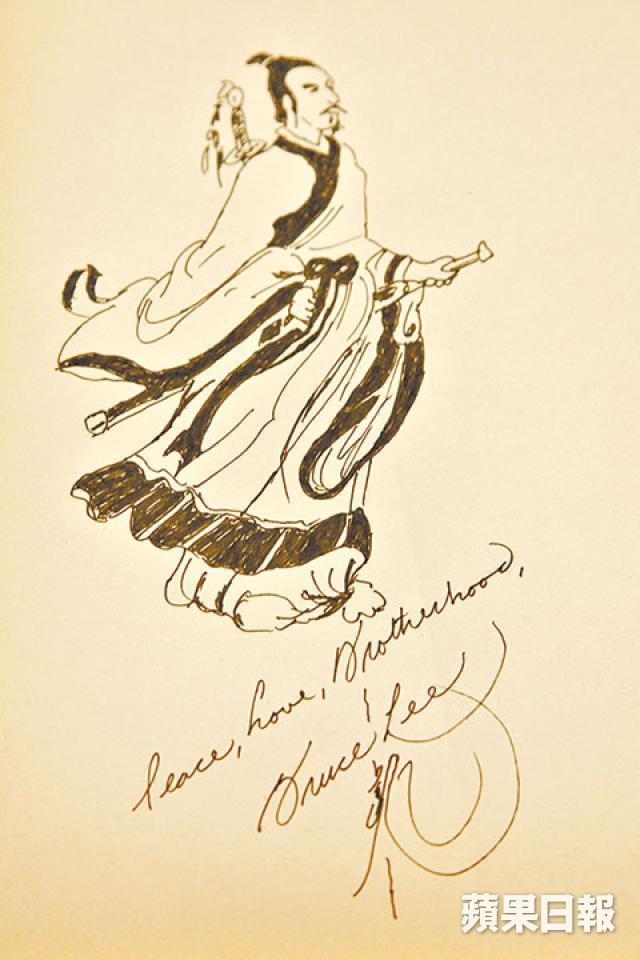 Peace, Love, Brotherhood,
Bruce Lee
蘋果日報